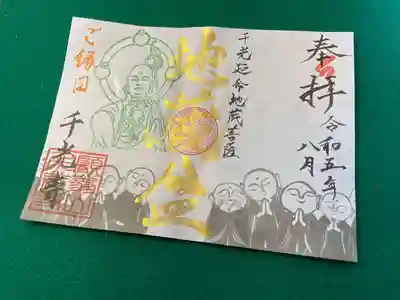 奉拝
令和五年
八月
千光延命地蔵菩薩
地蔵尊
ご縁日
千光寺